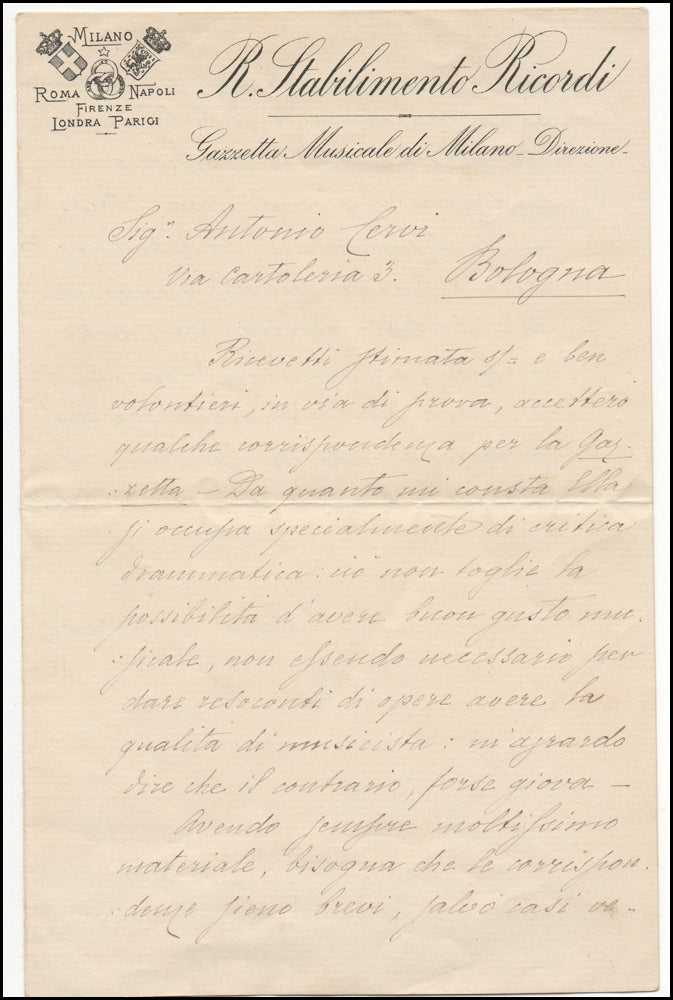 MILANO
ROMA NAPOLI
FIRENZE
LONDRA PARIGI
R. Stabilimento Ricordi
Gazzetta Musicale di Milano - Direzione -
Sigr. Antonio Cervi
Via Cartoleria 3. Bologna
Ricevetti stimata s/= e ben
volontieri, in via di prova, accetterò
qualche corrispondenza per la Gaz-
-zetta - Da quanto mi consta Ella
si occupa specialmente di critica
drammatica: ciò non toglie la
possibilità d'avere buon gusto mu-
-sicale, non essendo necessario per
dare resoconti di opere avere la
qualità di musicista:
dire che il contrario, forse giova -
Avendo sempre moltissimo
materiale, bisogna che le corrispon-
-denze sieno brevi, salvo casi ve-